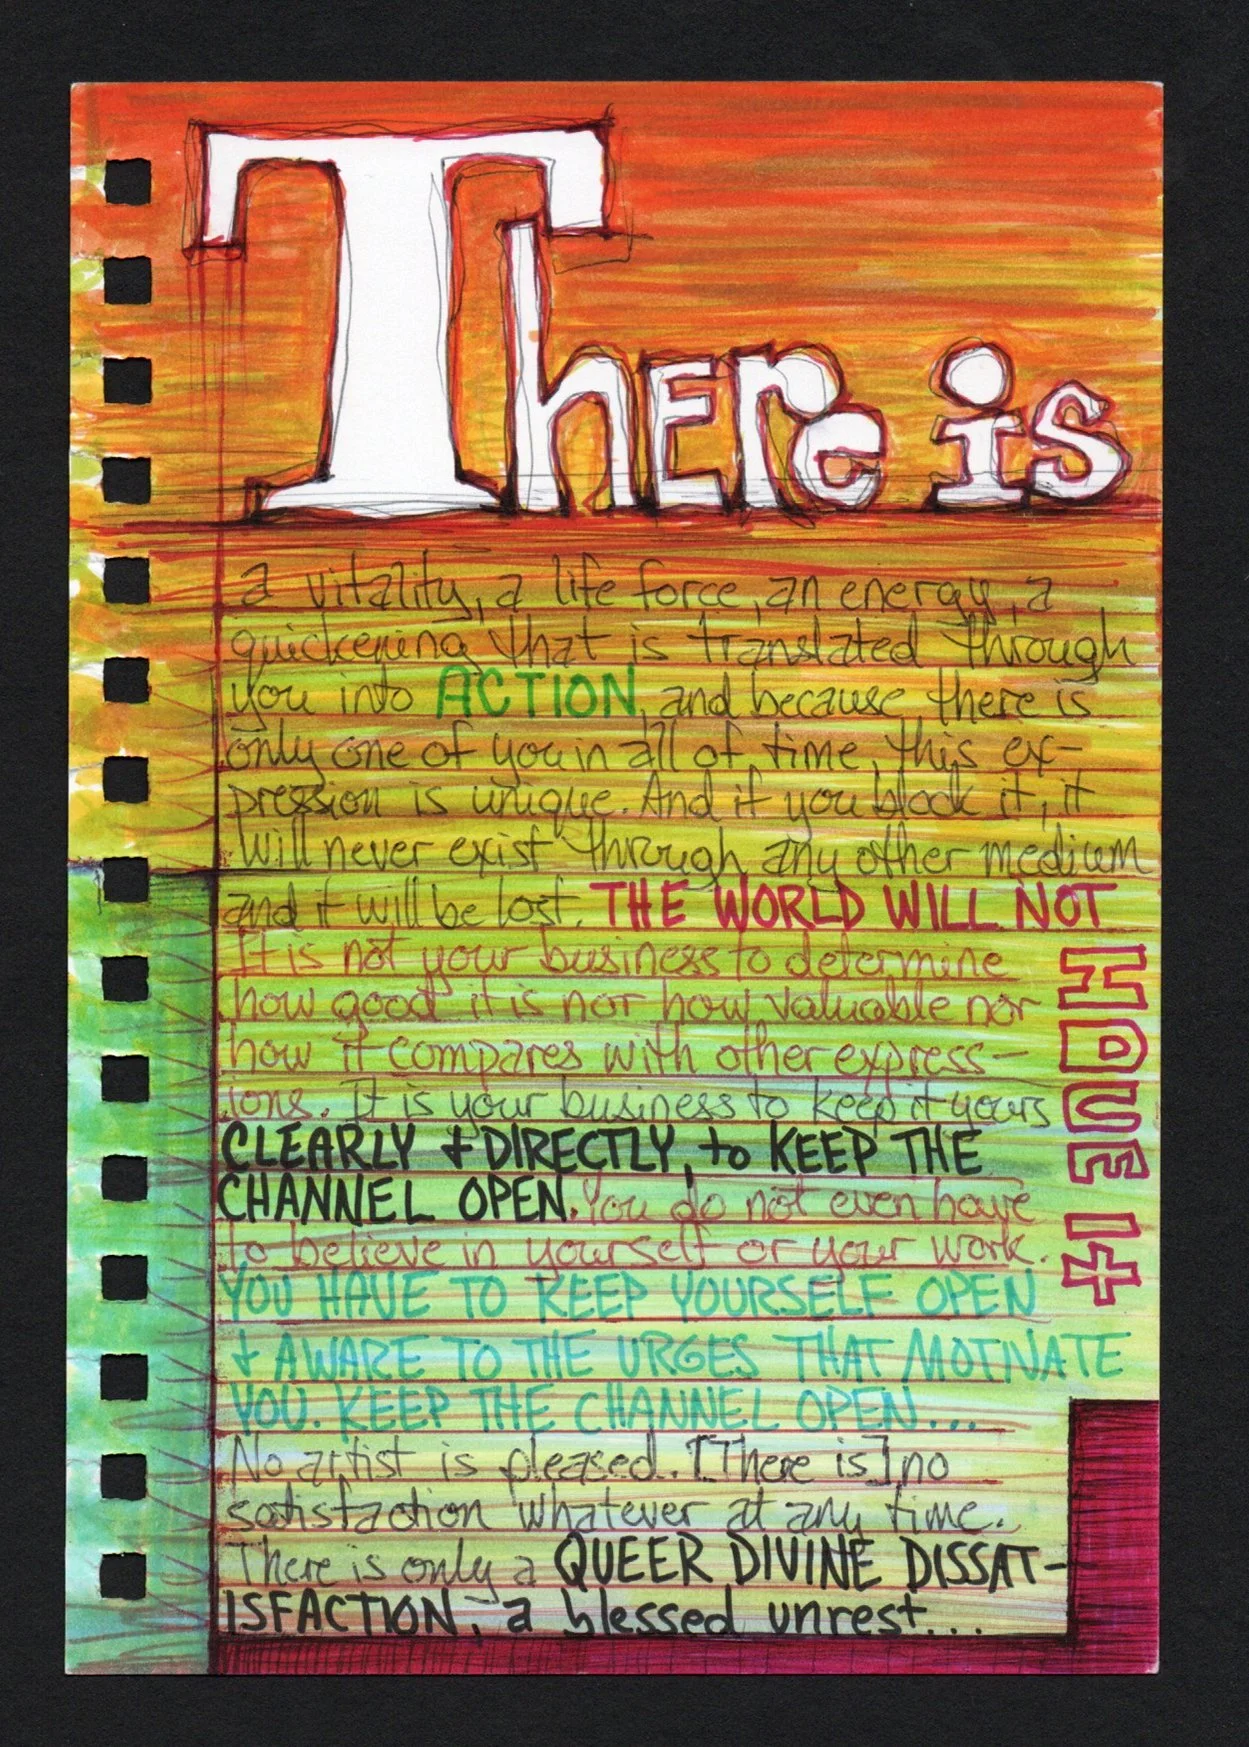 There is
a vitality, a life force, an energy, a
quickening that is translated through
you into ACTION, and because there is
only one of you in all of time, this ex-
pression is unique. And if you block it, it
will never exist through any other medium
and it will be lost. THE WORLD WILL NOT
HAVE it
It is not your business to determine
how good it is nor how valuable nor
how it compares with other express-
ions. It is your business to keep it yours
CLEARLY & DIRECTLY, to KEEP THE
CHANNEL OPEN. You do not even have
to believe in yourself or your work.
YOU HAVE TO KEEP YOURSELF OPEN
& AWARE TO THE URGES THAT MOTIVATE
YOU. KEEP THE CHANNEL OPEN...
No artist is pleased. [There is] no
satisfaction whatever at any time.
There is only a QUEER DIVINE DISSAT-
ISFACTION, a blessed unrest...